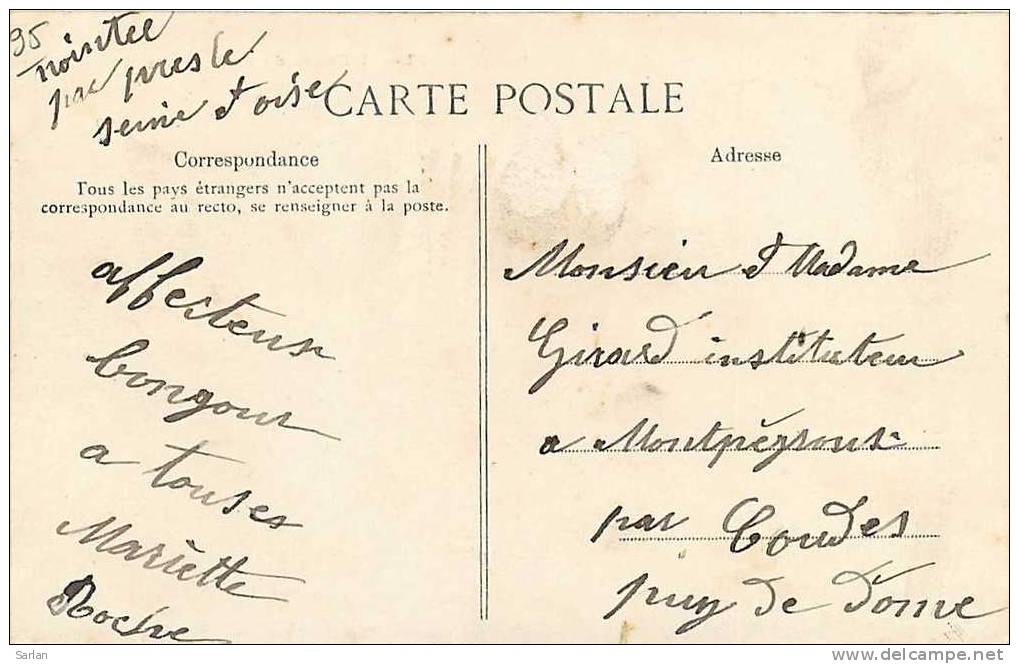 95
nointee
par presle
seine et oise
CARTE POSTALE
Correspondance
Tous les pays étrangers n'acceptent pas la
correspondance au recto, se renseigner à la poste.
affecteuse
bongour
a touses
Mariette
Roche
Adresse
Monsieu et Madame
Girard instituteur
a Montpéyroux
par Coudes
puy de Dome
Sarlan
www.delcampe.net